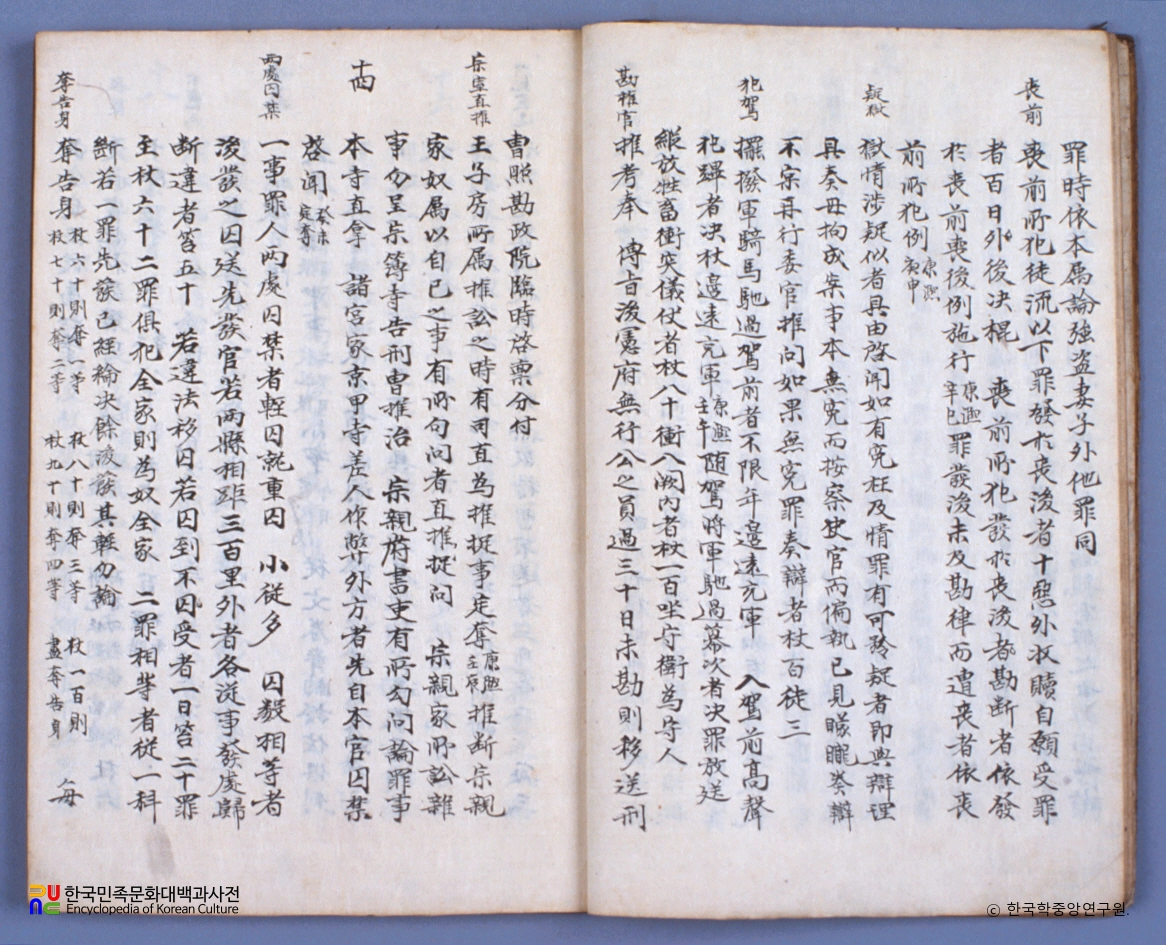 罪時依本属論強盜妻子外他罪同
喪前
喪前所犯徒流以下罪發於喪後者十惡外收贖自願受罪
者百日外後決棍 喪前所犯發於喪後者勘斷者依發
於喪前喪後例施行康熙辛巳罪發後未及勘律而遭喪者依喪
前所犯例康熙庚申
疑獄
獄情涉疑似者具由啓聞如有冤枉及情罪有可矜疑者即與辯理
具奏毋拘成案事本無冤而按察使官而偏執已見朦朧奏辯
不宗再行委官推問如果無冤罪奏辯者杖百徒三
犯駕
擺撥軍騎馬馳過駕前者不限年邊遠充軍 入駕前高聲
犯蹕者決杖邊遠充軍康熙壬午随駕將軍馳過幕次者決罪放送
縱放牲畜衝突儀仗者杖八十衝入闕內者杖一百坐守衛爲守人
勘推官
推考奉 傳旨後憲府無行公之員過三十日未勘則移送刑
曹照勘政院臨時啓禀分付
宗室直推
王子房所属推訟之時有司直爲推捉事定奪康熙壬辰推斷宗親
家奴属以自已之事有所句問者直推捉問 宗親家所訟雜
事勿呈宗簿寺告刑曹推治 宗親府書吏有所句問論罪事
十四
本寺直拿 諸宮家京甲寺差人作弊外方者先自本官囚禁
啓聞癸未定奪
兩處囚禁
一事罪人两處囚禁者輕囚就重囚 小從多 囚数相等者
後發之囚送先發官若两縣相距三百里外者各從事發處歸
斷違者笞五十 若違法移囚若囚到不囚受者一日笞二十罪
至杖六十二罪俱犯全家則爲奴全家 二罪相等者從一科
斷若一罪先發已經論決餘後發其輕勿論
奪告身
奪告身 杖六十則奪一等 杖七十則奪二等 杖八十則奪三等 杖九十則奪四等 杖一百則盡奪告身 每
한국민족문화대백과사전
Encyclopedia of Korean Culture
ⓒ 한국학중앙연구원.